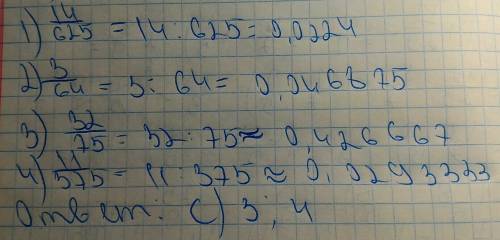 1) 14/625 = 14 : 625 = 0,0224
2) 3/64 = 3 : 64 = 0,046875
3) 32/75 = 32 : 75 ≈ 0,426667
4) 11/375 = 11 : 375 ≈ 0,0293333
Ответ: С) 3; 4